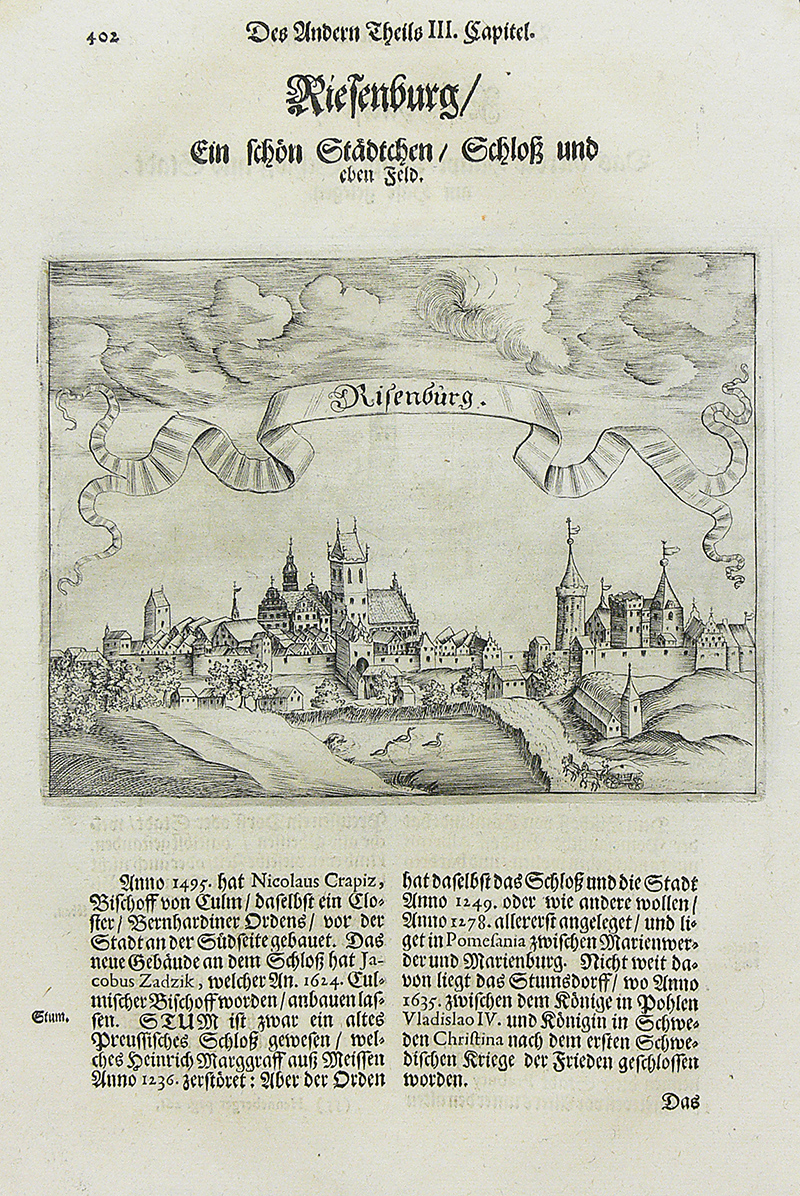 402
Des Andern Theils III. Capitel.
Riesenburg/
Ein schön Städtchen/ Schloß und
eben Feld.
Risenburg.
Anno 1495. hat Nicolaus Crapiz,
Bischoff von Culm/ daselbst ein Clo-
ster/ Bernhardiner Ordens/ vor der
Stadt an der Südseite gebauet. Das
neue Gebäude an dem Schloß hat Ja-
cobus Zadzik, welcher An. 1624. Cul-
mischer Bischoff worden/ anbauen las-
Stum.
sen. STUM ist zwar ein altes
Preussisches Schloß gewesen/ wel-
ches Heinrich Marggraff auß Meissen
Anno 1236. zerstöret: Aber der Orden
hat daselbst das Schloß und die Stadt
Anno 1249. oder wie andere wollen/
Anno 1278. allererst angeleget/ und li-
get in Pomesania zwischen Marienwer-
der und Marienburg. Nicht weit da-
von liegt das Stumsdorff/ wo Anno
1635. zwischen dem Könige in Pohlen
Vladislao IV. und Königin in Schwe-
den Christina nach dem ersten Schwe-
dischen Kriege der Frieden geschlossen
worden.
Das